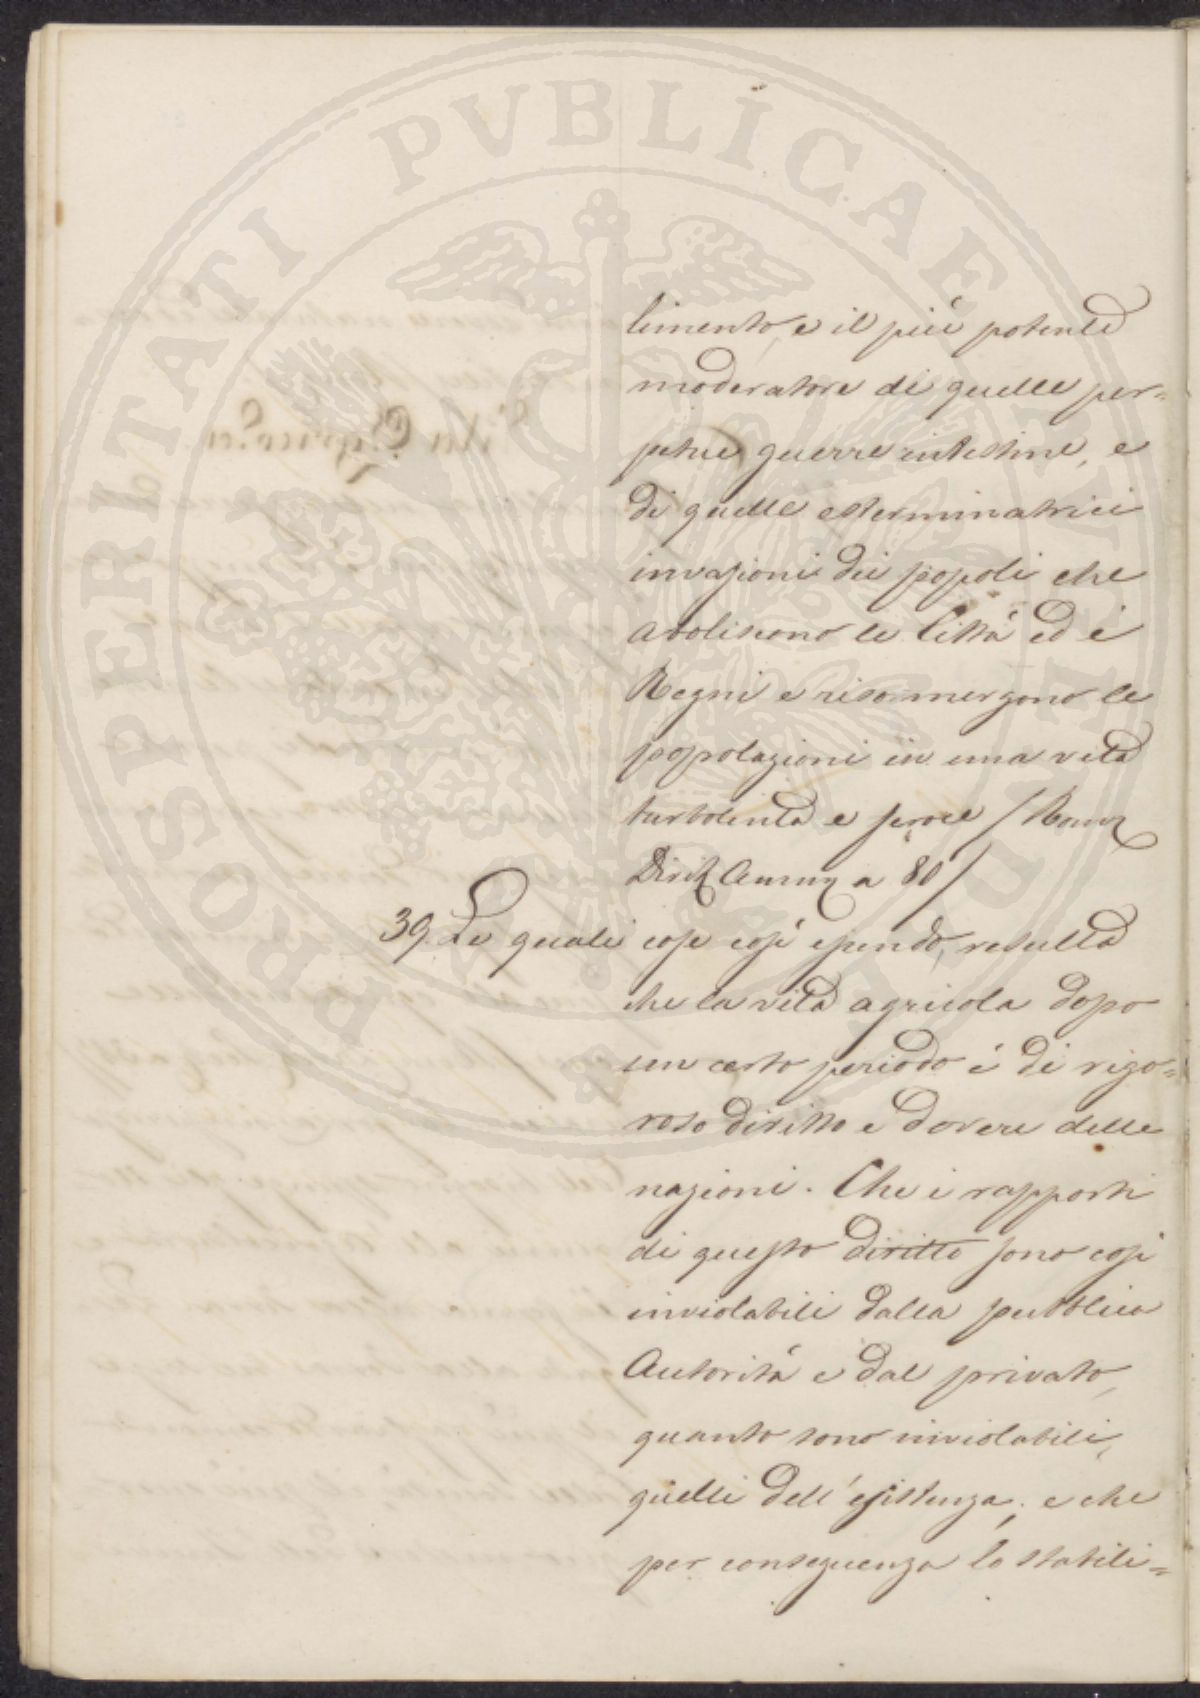 PROSPERITATI PVBLICAE
limento, e il più potente
moderatore di quelle per=
petue guerre intestine, e
di quelle esterminatrici
invasioni dei popoli che
aboliscono le Città ed i
Regni e risommergono le
popolazioni in una vita
turbolenta e feroce /Romz
Diritz Ammz a 80/
39. Le quali cose così essendo, resulta
che la vita agricola dopo
un certo periodo é di rigo=
roso diritto e dovere delle
nazioni. Che i rapporti
di questo diritto sono così
inviolabili dalla pubblica
Autorità e dal privato,
quanto sono inviolabili,
quelli dell'esistenza; e che
per conseguenza lo stabili=